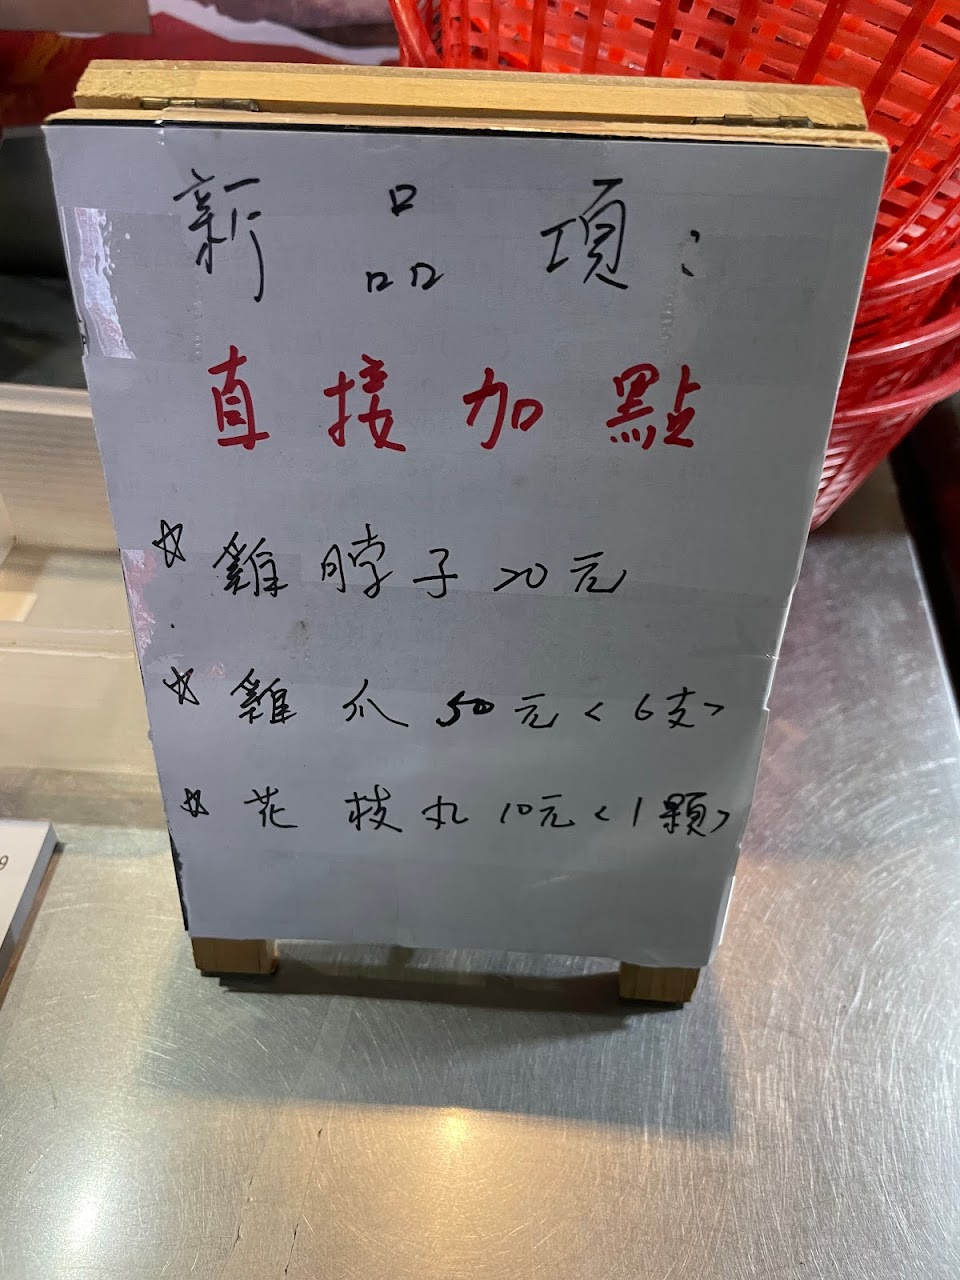 新品項:
直接加點
☆雞脖子20元
☆雞爪50元<6支>
☆花枝丸10元<1顆>
9